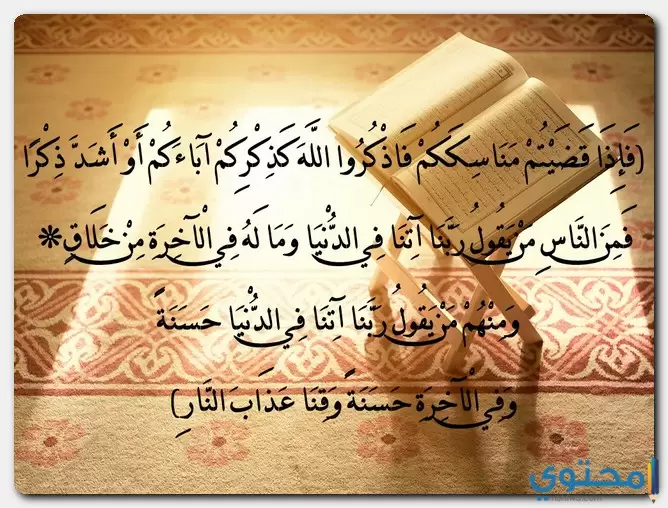 (فَإِذَا قَضَيْتُمْ مَنَاسِكَكُمْ فَاذْكُرُوا اللَّهَ كَذِكْرِكُمْ آبَاءَكُمْ أَوْ أَشَدَّ ذِكْرًا
فَمِنَ النَّاسِ مَنْ يَقُولُ رَبَّنَا آتِنَا فِي الدُّنْيَا وَمَا لَهُ فِي الْآخِرَةِ مِنْ خَلَاقٍ*
وَمِنْهُمْ مَنْ يَقُولُ رَبَّنَا آتِنَا فِي الدُّنْيَا حَسَنَةً
وَفِي الْآخِرَةِ حَسَنَةً وَقِنَا عَذَابَ النَّارِ)
محتوي